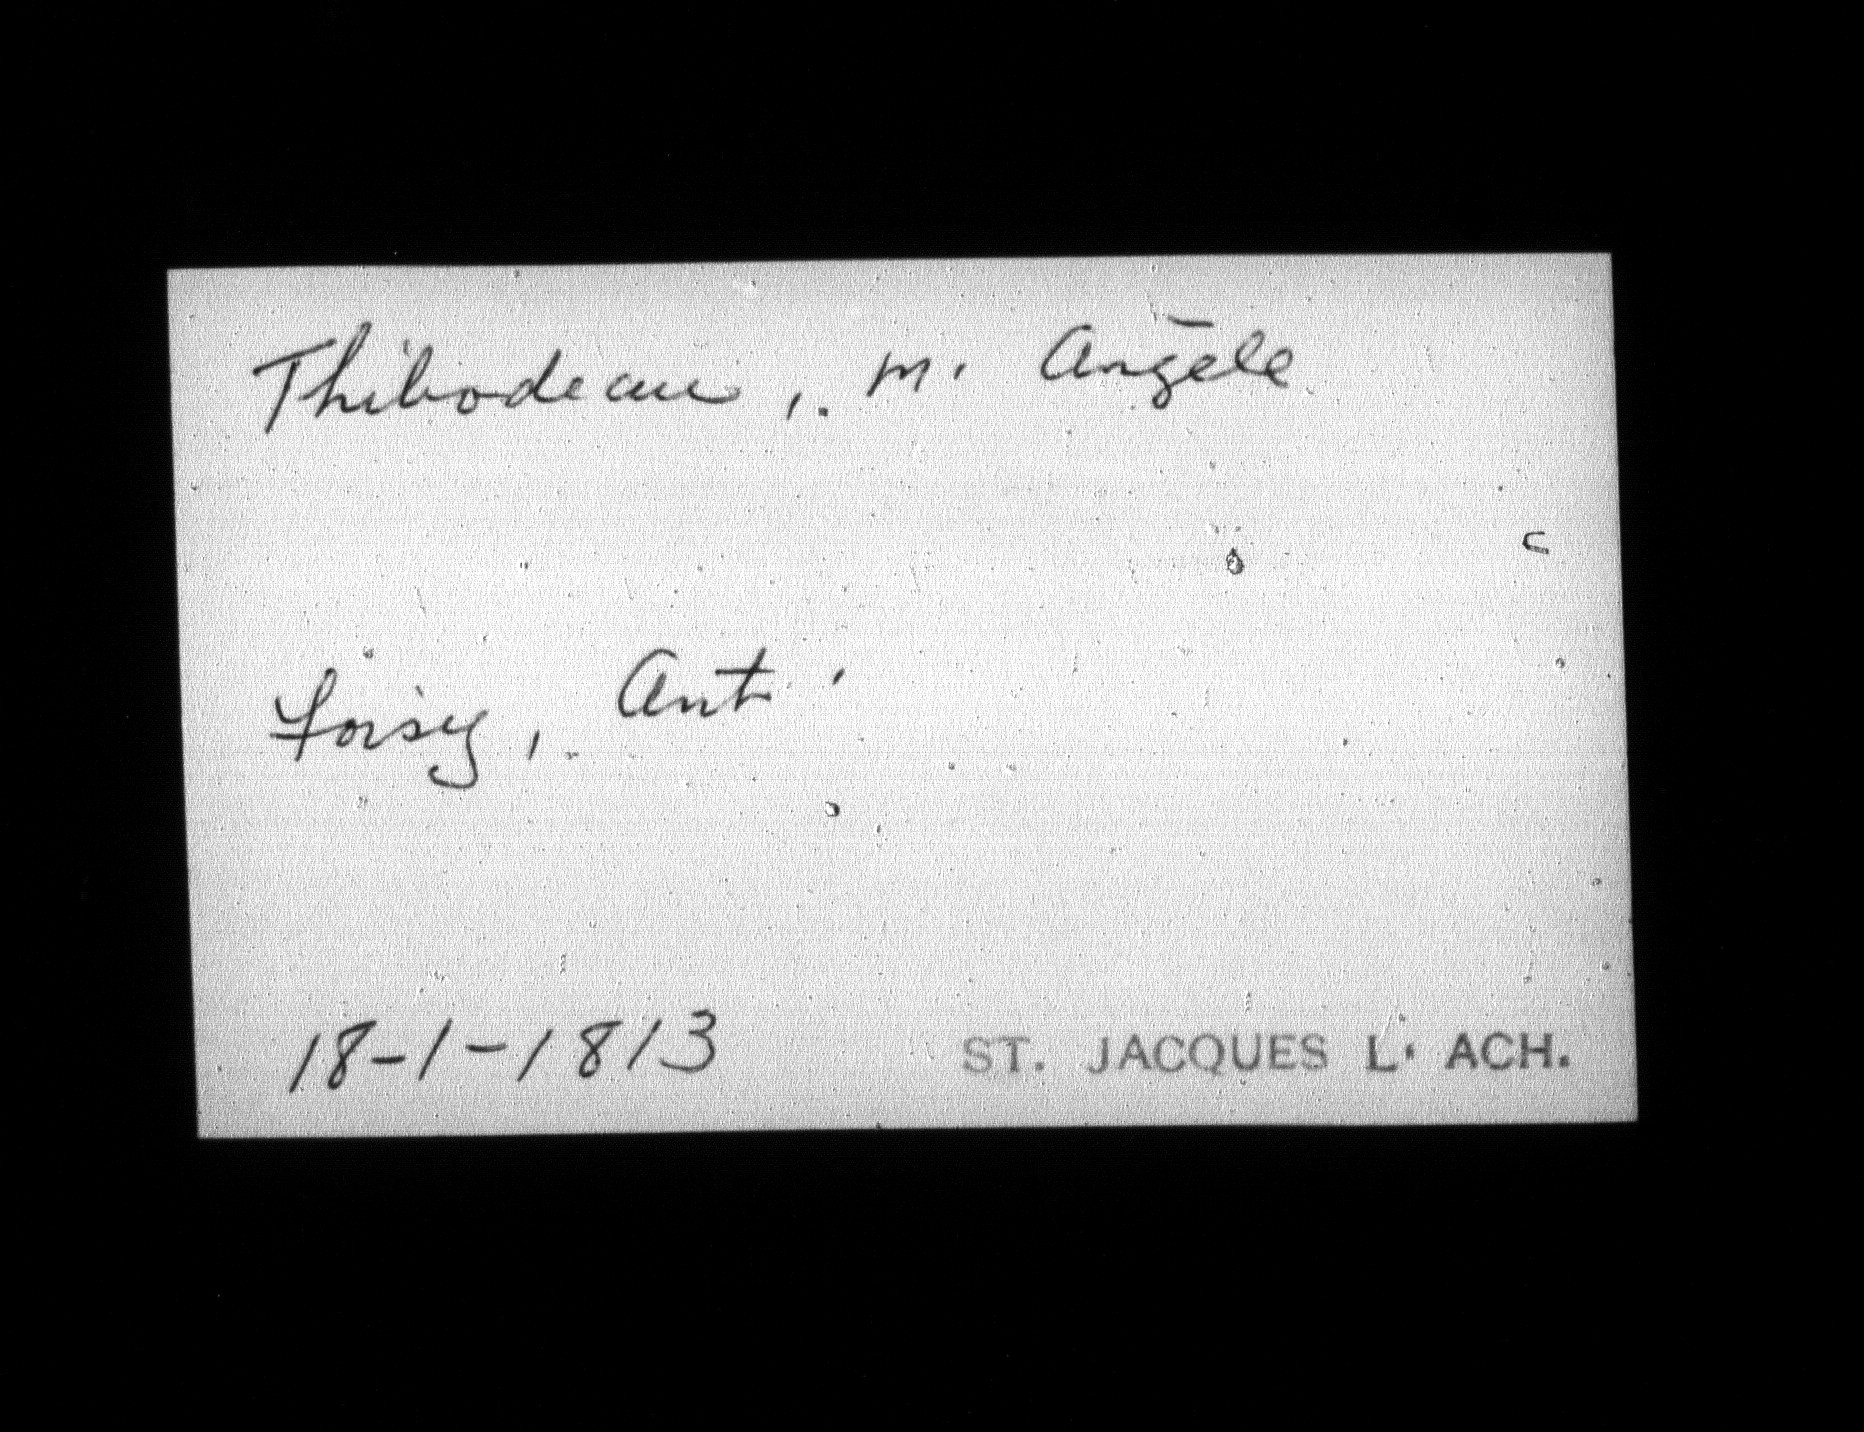 Thibodeau, M. Angèle
Foisy, Ant.
18-1-1813 ST. JACQUES L' ACH.